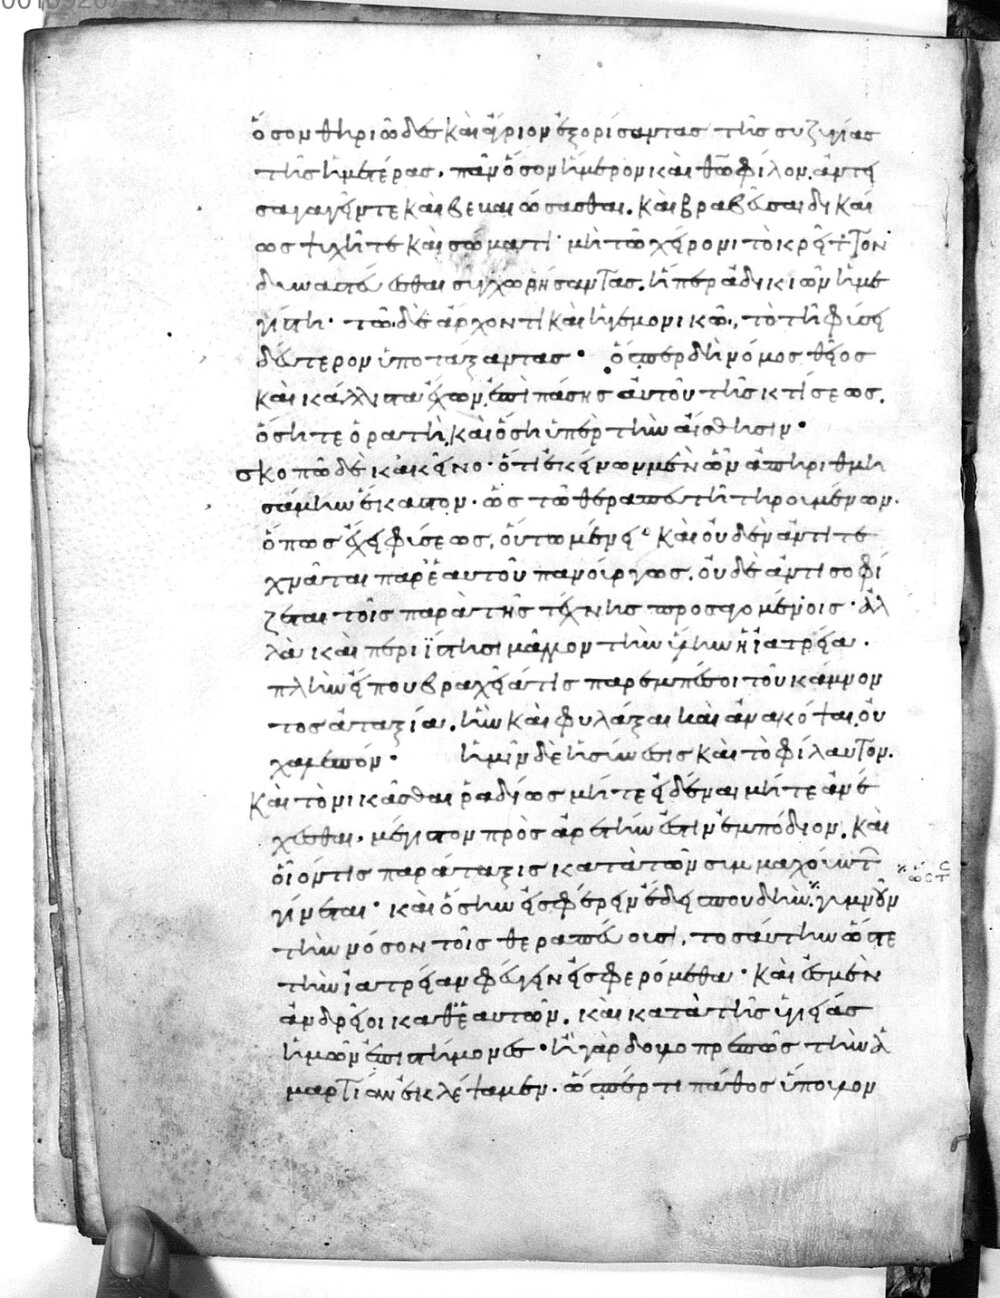 ὅσον θηριῶδες καὶ ἄγριον ἐξορίσαντας τῆς συζυγίας
τῆς ἡμετέρας, πᾶν ὅσον ἥμερον καὶ θῶ φίλον, ἀντει
σαγαγεῖν τε καὶ βεβαιώσασθαι. καὶ βραβεῦσαι δικαί
ως ψυχῆ τε καὶ σώματι· μὴ τῶ χείρονι τὸ κρεῖττον
δυναστεύεσθαι συγχωρήσαντας. ἥπερ ἀδικιῶν ἡ με
γίστη· τῶ δὲ ἄρχοντι καὶ ἡγεμονικῶ, τὸ τῆ φύσει
δεύτερον ὑποτάξαντας· ὅπερ δὴ νόμος θεῖος
καὶ κάλλιστα ἔχων, ἐπὶ πάσης αὐτοῦ τῆς κτίσεως,
ὅση τε ὁρατὴ, καὶ ὅση ὑπὲρ τὴν αἴσθησιν·
σκοπῶ δὲ κἀκεῖνο· ὅτι ἐκείνων μὲν ὧν ἀπηριθμη
σάμην ἕκαστον· ὡς τῶ θεραπευτῆ τηρουμένων.
ὅπως ἔχει φύσεως, οὕτω μένει· καὶ οὐδὲν ἀντιτε
χνᾶται παρ' ἑαυτοῦ πανούργως, οὐδὲ ἀντισοφί
ζεται τοῖς παρὰ τῆς τέχνης προσαγομένοις· ἀλ
λὰ καὶ περιΐστησι μᾶλλον τὴν ὕλην ἡ ἰατρεία·
πλὴν εἴ που βραχεῖά τις παρεμπέσοι τοῦ κάμνον
τος ἀταξία, ἣν καὶ φυλάξαι καὶ ἀνακόψαι, οὐ
χαλεπόν· ἡμῖν δὲ ἡ σύνεσις καὶ τὸ φίλαυτον.
καὶ τὸ νικᾶσθαι ῥαδίως μήτε εἰδέναι μήτε ἀνέ
χεσθαι, μέγιστον πρὸς ἀρετήν ἐστιν ἐμπόδιον, καὶ
οἷόν τις παράταξις κατὰ τῶν συμμαχούντ
γίνεται· καὶ ὅσην εἰσφέρειν ἔδει σπουδὴν, γυμνοῦν
τὴν νόσον τοῖς θεραπεύουσι, τοσαύτην ὥστε
τὴν ἰατρείαν φεύγειν εἰσφερόμεθα· καὶ ἐσμὲν
ἀνδρεῖοι καθ' ἑαυτῶν, καὶ κατὰ τῆς ὑγιείας
ἡμῶν ἐπιστήμονες· ἢ γὰρ δουλοπρεπῶς τὴν ἁ
μαρτίαν ἐκλέψαμεν· ὥσπερ τι πάθος ὕπουλον